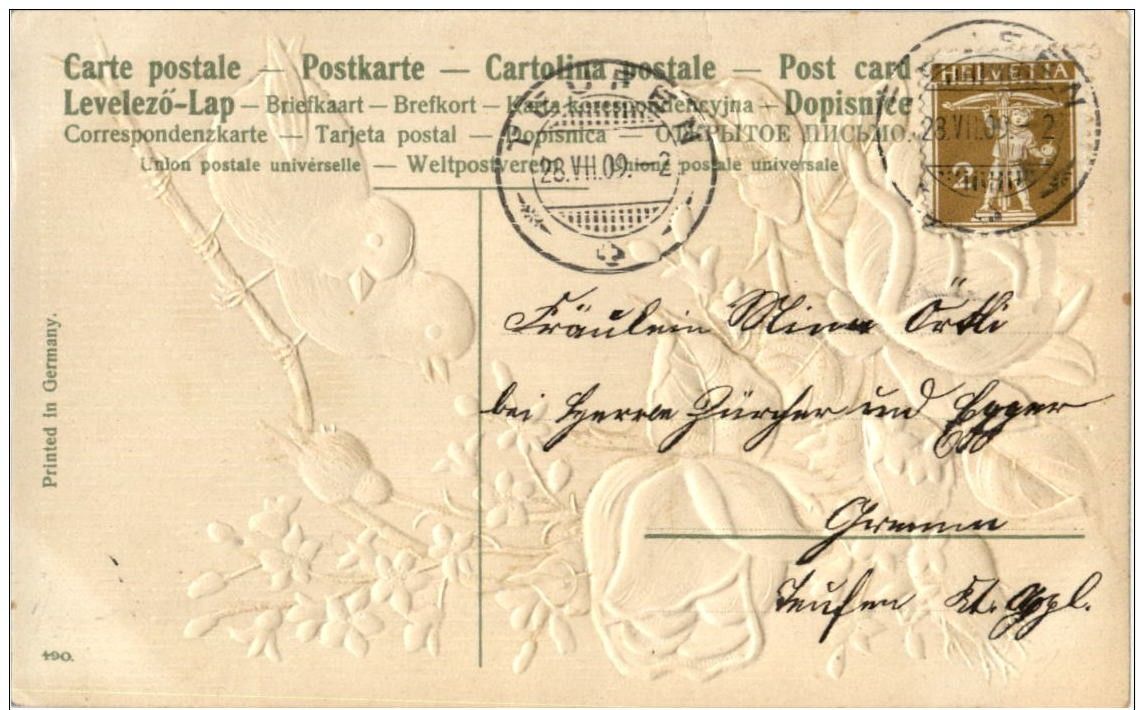 Carte postale — Postkarte — Cartolina postale — Post card
Levelező-Lap — Briefkaart — Brefkort — Karta korespondencyjna — Dopisnice
Correspondenzkarte — Tarjeta postal — Dopisnica — ОТКРЫТОЕ ПИСЬМО.
Union postale universelle — Weltpostverein — Unione postale universale
HELVETIA
2
TEUFEN
28.VII.09.-2
28.VII.09. 2
Fräulein Mina Örtli
bei Herrn Zürcher und Egger
Teufen Kt. Appl.
Printed in Germany.
490.